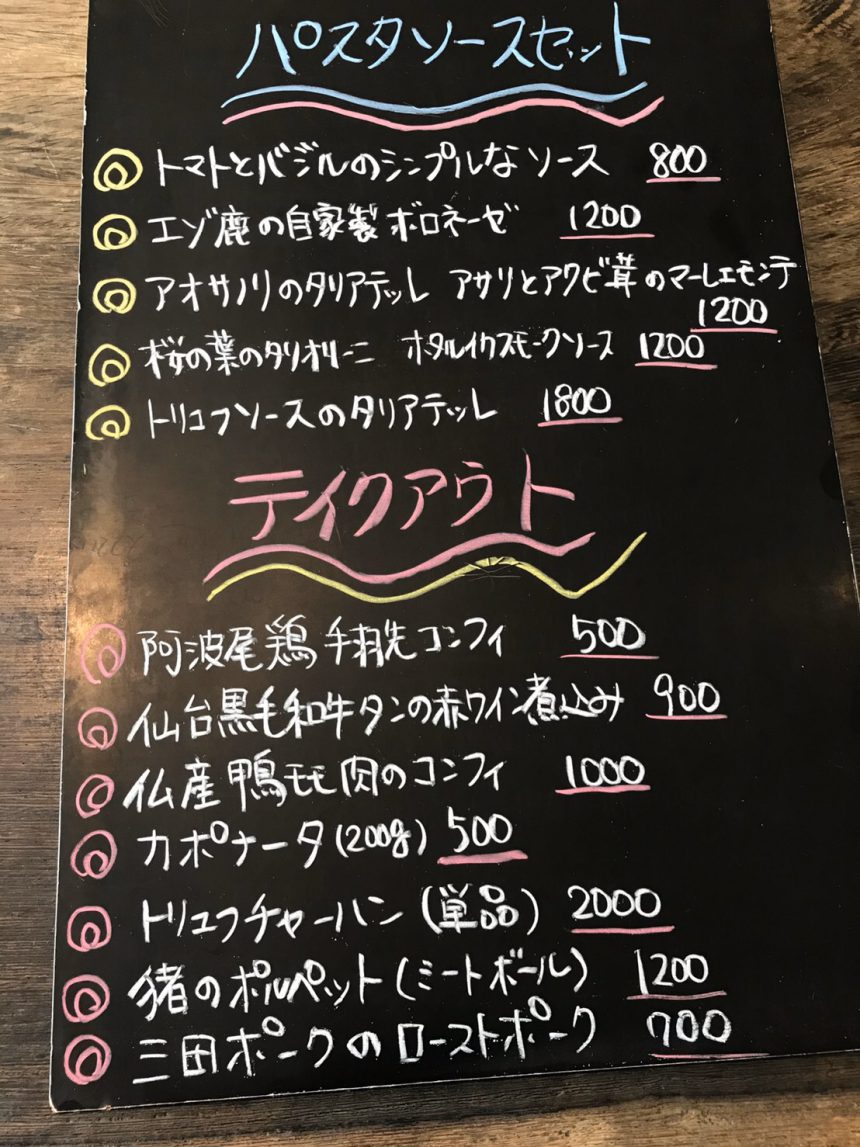 パスタソースセット
トマトとバジルのシンプルなソース 800
エゾ鹿の自家製ボロネーゼ 1200
アオサノリのタリアテッレ アサリとアワビ茸のマーレエモンテ
1200
桜の葉のタリオリーニ ホタルイカスモークソース 1200
トリュフソースのタリアテッレ 1800
テイクアウト
阿波尾鶏手羽先コンフィ 500
仙台黒毛和牛タンの赤ワイン煮込み 900
仏産鴨モモ肉のコンフィ 1000
カポナータ(200g) 500
トリュフチャーハン(単品) 2000
猪のポルペット(ミートボール) 1200
三田ポークのローストポーク 700